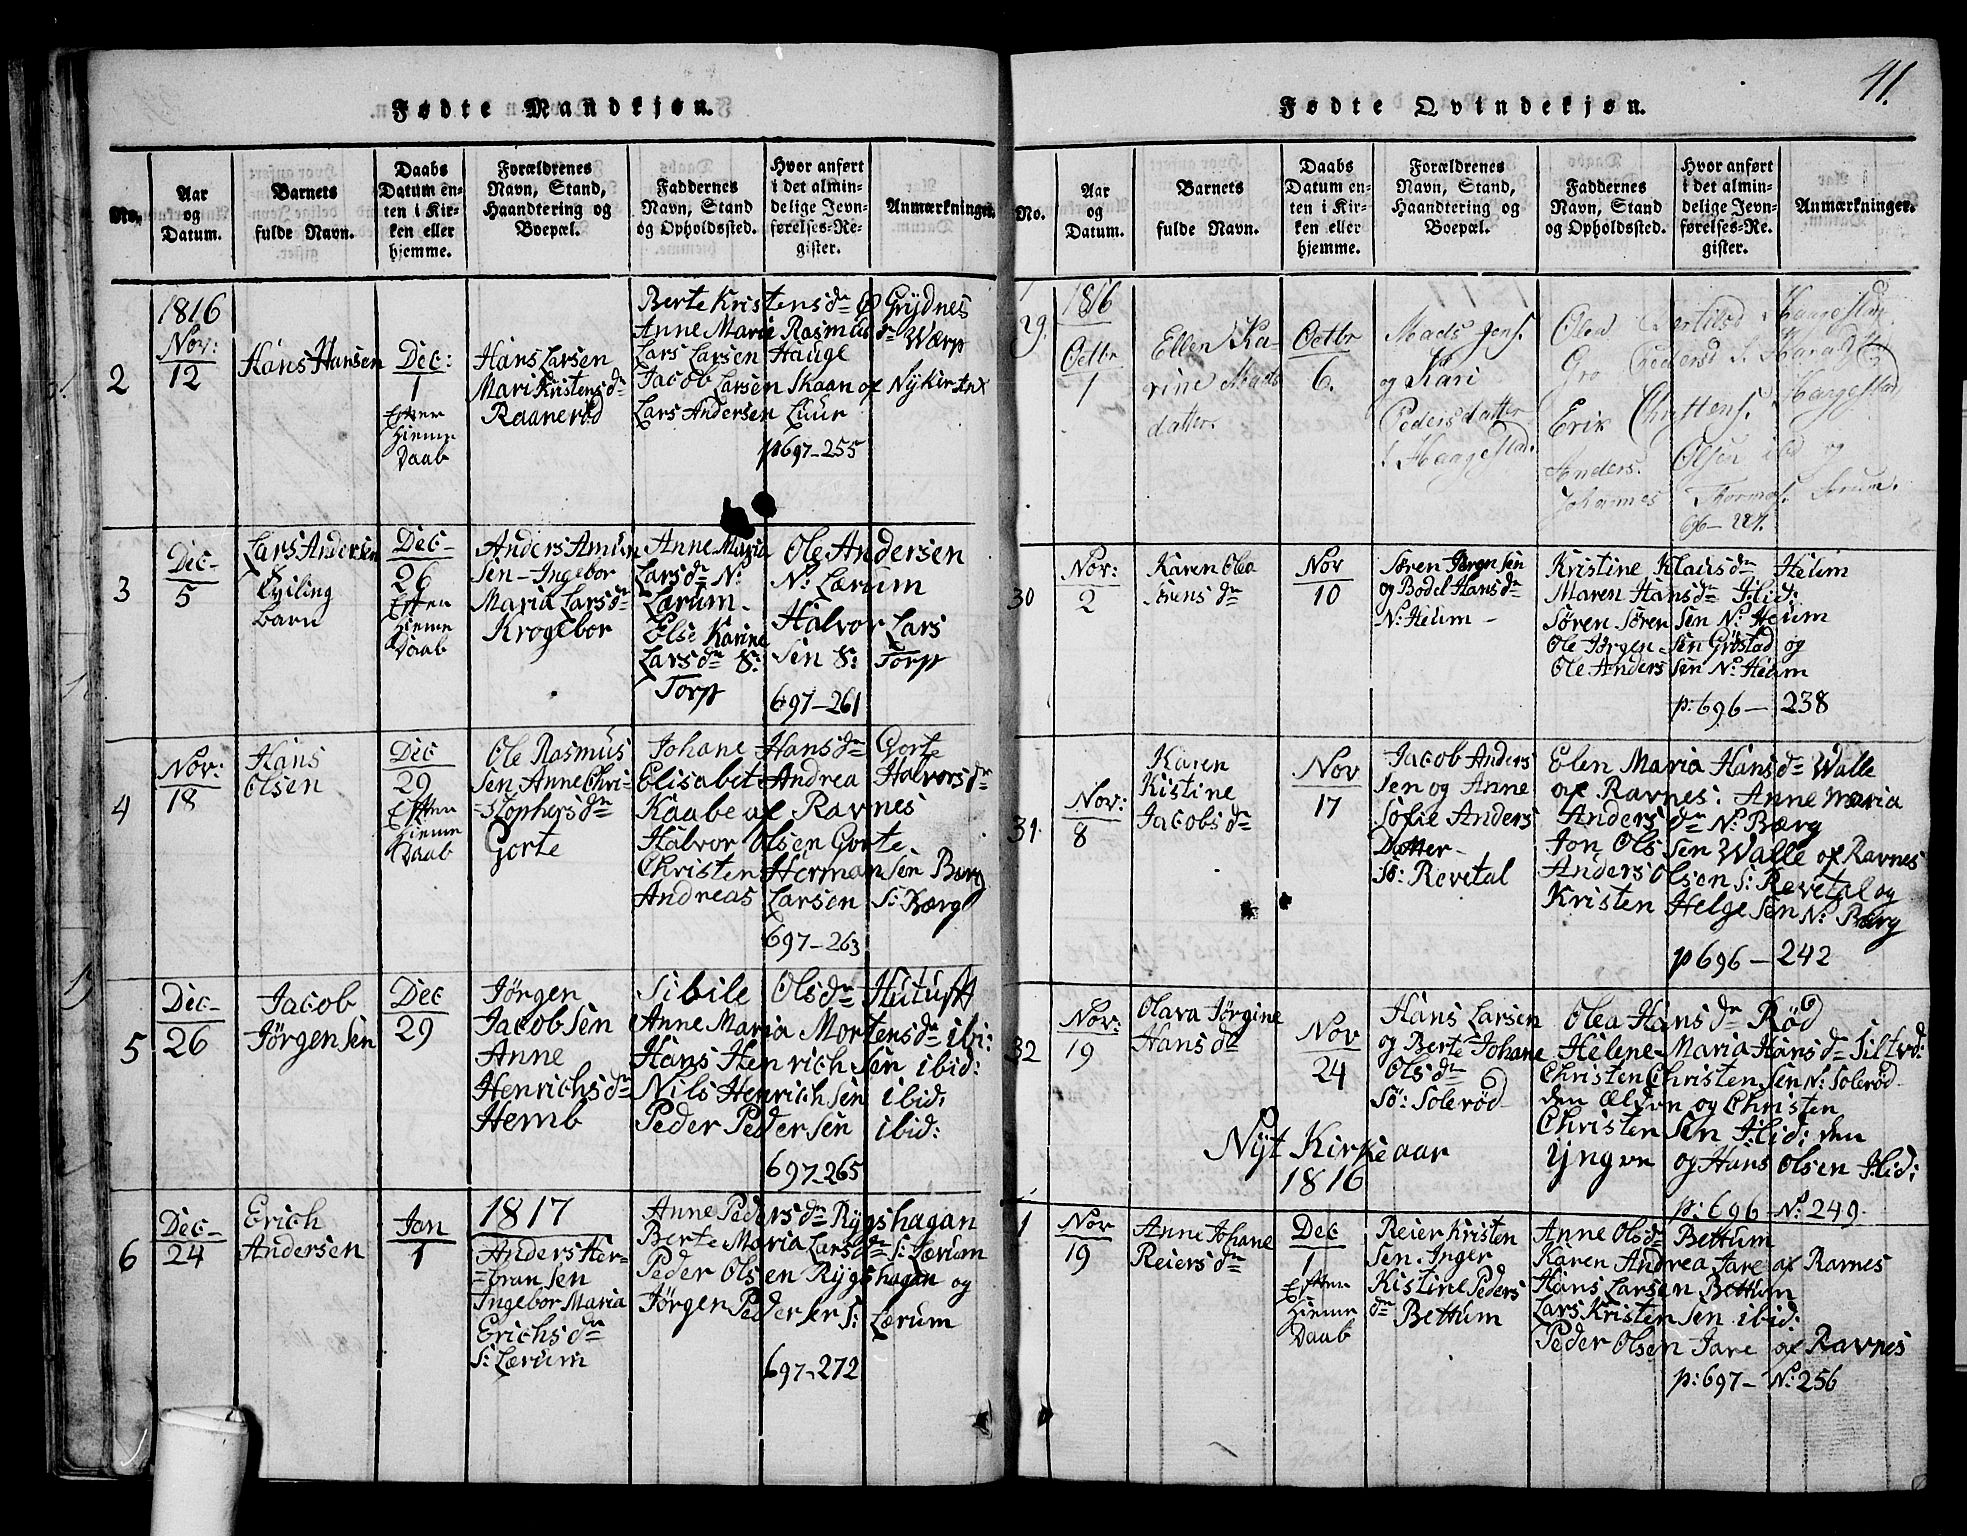 41.
Fødte Mandkjøn.
No.
Aar
og
Datum.
Barnets
fulde Navn.
Daabs
Datum en-
ten i Kir-
ken eller
hjemme.
Forældrenes
Navn, Stand,
Haandtering og
Boepæl.
Faddernes
Navn, Stand
og Opholdssted.
Hvor anført
i det almin-
delige Jevn-
førelses-Re-
gister.
Anmærkninger.
2
1816
Nov:
12
Hans Hansen
Dec:
1
Efter
Hieme
Daab
Hans Larsen
Mari Kristensdr
Raanerød
Berte Kristensdr Ø Grydnes
Anne Maria Rasmusdr Wærp
Lars Larsen Hauge
Jacob Larsen Skaan af Nykirke
Lars Andersen Luur
p697-255
3
Dec-
5
Lars Andersen
Tviling
barn
Dec-
26
Efter
Hieme
Daab
Anders Amun
sen-Ingebor
Maria Larsdr
Krogebor
Anne Maria
Larsdr N:
Lærum-
Else Karine
Larsdr S:
Torp
Ole Andersen
N: Lærum
Halvor Lars
sen S: Torp
697-261
4
Nov:
18
Hans
Olsen
Dec
29
Efter
Hieme
Daab
Ole Rasmus
sen Anne Chri-
-stophersdr
Gorte
Johane Hansdr Gorte
Elisabet Andrea Halvorsdr
Kaabe af Ravnes
Halvor Olsen Gorte
Christen Hermansen Børg
Andreas Larsen S: Bærg
697-263
5
Dec-
26
Jacob
Jørgensen
Dec
29
Jørgen
Jacobsen
Anne
Henrichsdr
Hemb
Sibile Olsdr Hutuft
Anne Maria Mortensdr ibi:
Hans Henrichsen ibid:
Nils Henrichsen ibid:
Peder Pedersen ibid:
697-265
6
Dec-
24
Erich
Andersen
Jan
1
1817
Anders Her-
=bransen
Ingebor Maria
Erichsdr
S: Lærum
Anne Pedersdr Rygshagan
Berte Maria Larsdr S: Lærum
Peder Olsen Rygshagan og
Jørgen Pederser S: Lærum
697-272
Fødte Qvindekjøn.
No.
Aar
og
Datum.
Barnets
fulde Navn.
Daabs
Datum en-
ten i Kir-
ken eller
hjemme.
Forældrenes
Navn, Stand,
Haandtering og
Boepæl.
Faddernes
Navn, Stand
og Opholdssted.
Hvor anført
i det almin-
delige Jevn-
førelses-Re-
gister.
Anmærkninger.
29.
1816
Octbr
1
Ellen Ka-
rine Mads
datter
Octbr
6.
Mads Jens.
og Kari
Pedersdatter
i Haagestad.
Olea Bertilsd Haagestad
Gro Pedersd
Erik Christens. Haagestad
Anders Olsen ibid og
Johannes Thomas. Forum.
696-227.
30
Nov:
2
Karen Olea
Sørensdr
Nov
10
Søren Jørgensen
og Bodel Hansdr
N: Heum-
Kristine Klausdr Heum
Maren Hansdr Ibid:
Søren Sørensen N: Heum
Ole Jørgen-sen Grøstad og
Ole Anderssen N: Heum
p:696-238
31.
Nov:
8
Karen
Kistine
Jacobsdr
Nov
17
Jacob Anders
sen og Anne
Sofie Anders
Datter-
Sø: Revetal
Elen Maria Hansdr Walle
af Ravnes: Anne Maria
Andersdr N: Bærg
Jon Olssen Walle af Ravnes
Anders Olsen S: Revetal og
Kristen Helgesen N: Bærg
p696-242
32
Nov:
19
Olava Jørgine
Hansdr
Nov
24
Hans Larsen
og Berte Johane
Olsdr
Sø: Solerød
Olea Hansdr Rød
Helene Maria Hansdr Siltvd:
Christen Christensen N: Solerød
den Ælden og Christen
Christensen Ibid: den
Yngre og Hans Olsen Ibid:
p:696-N:249.
Nyt Kirkeaar
1816
1
Nov
19
Anne Johane
Reiersdr
Dec
1
Efter
Hieme
Daab
Reier Kristen
sen. Inger
Kistine Peders
dr Bettum
Anne Olsdr Bettum
Karen Andrea Jare af Ravnes
Hans Larsen Bettum
Lars Kristensen ibid:
Peder Olsen Jare af Ravnes
p:697-N:256